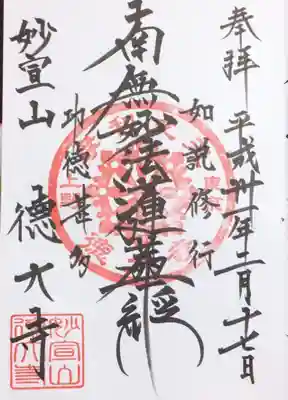 奉拝 平成卅一年二月十七日
如説修行
南無妙法蓮華経
功徳甚多
妙宣山 徳大寺
妙宣山
徳大寺